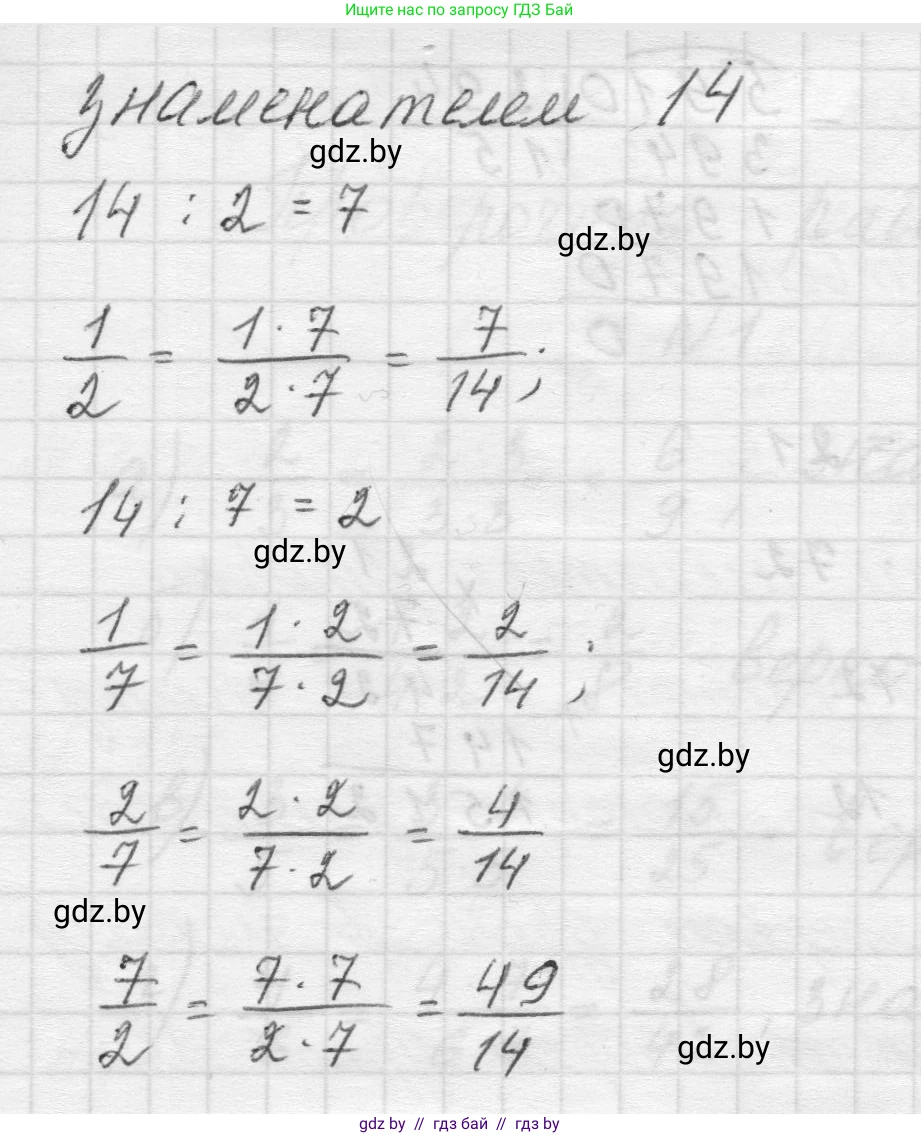 Ищите нас по запросу ГДЗ Бай
знаменателем 14
gdz.by
14 : 2 = 7
gdz.by
1/2 = 1 · 7/2 · 7 = 7/14;
14 : 7 = 2
gdz.by
1/7 = 1 · 2/7 · 2 = 2/14;
gdz.by
2/7 = 2 · 2/7 · 2 = 4/14
gdz.by
7/2 = 7 · 7/2 · 7 = 49/14
gdz.by
gdz by // гдз бай // гдз by